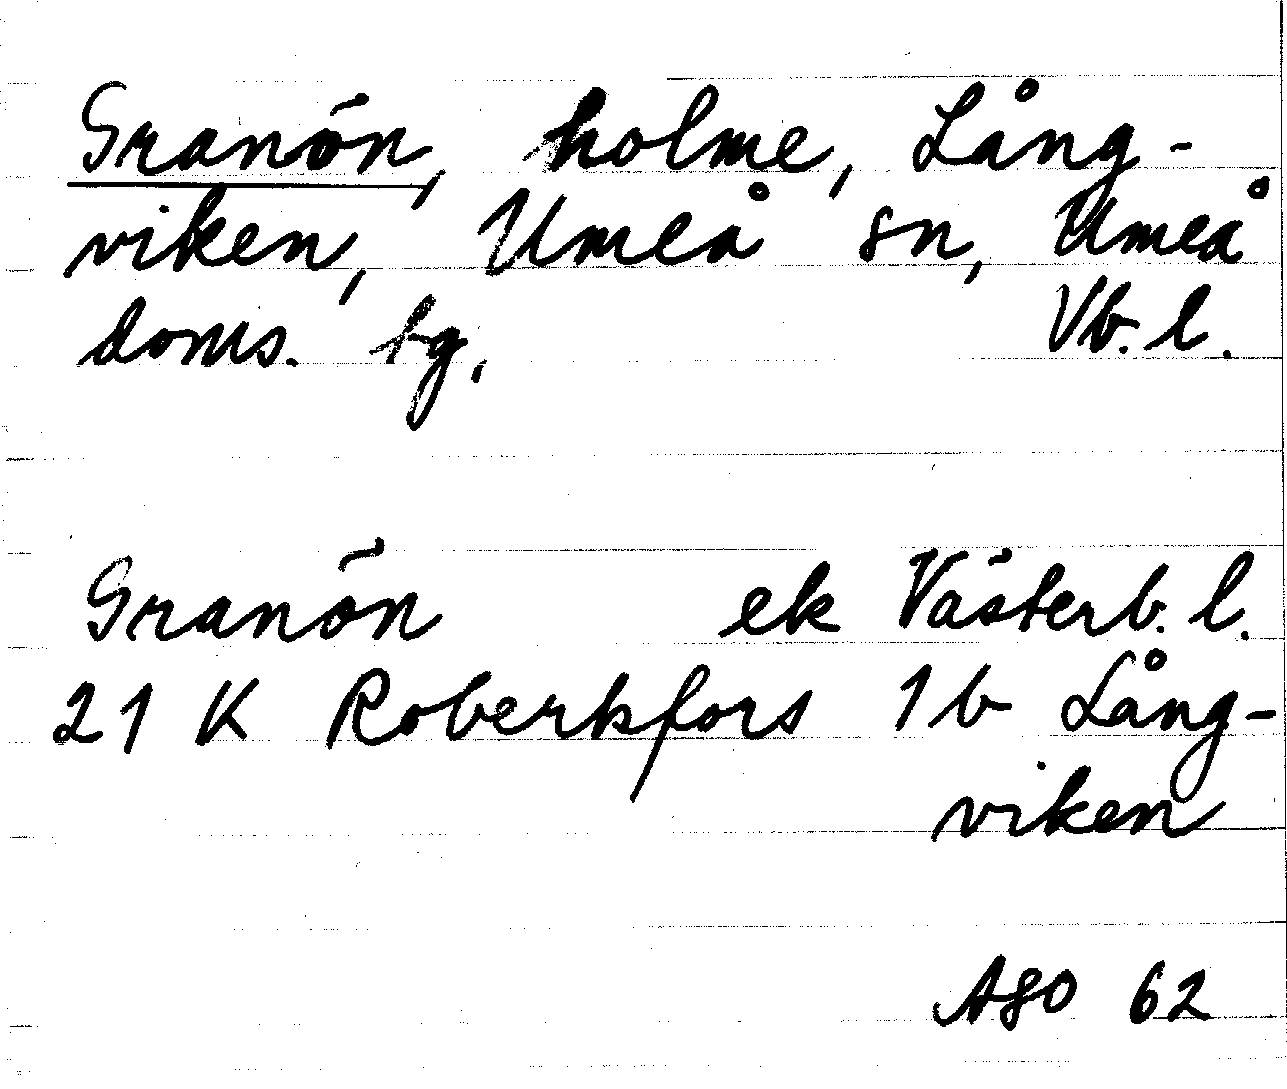 Granön, holme, Lång-
viken, Umeå sn, Umeå
doms. tg, Vb. l.
Granön ek Västerb. l.
21 K Robertsfors 1b Lång-
viken
ASO 62